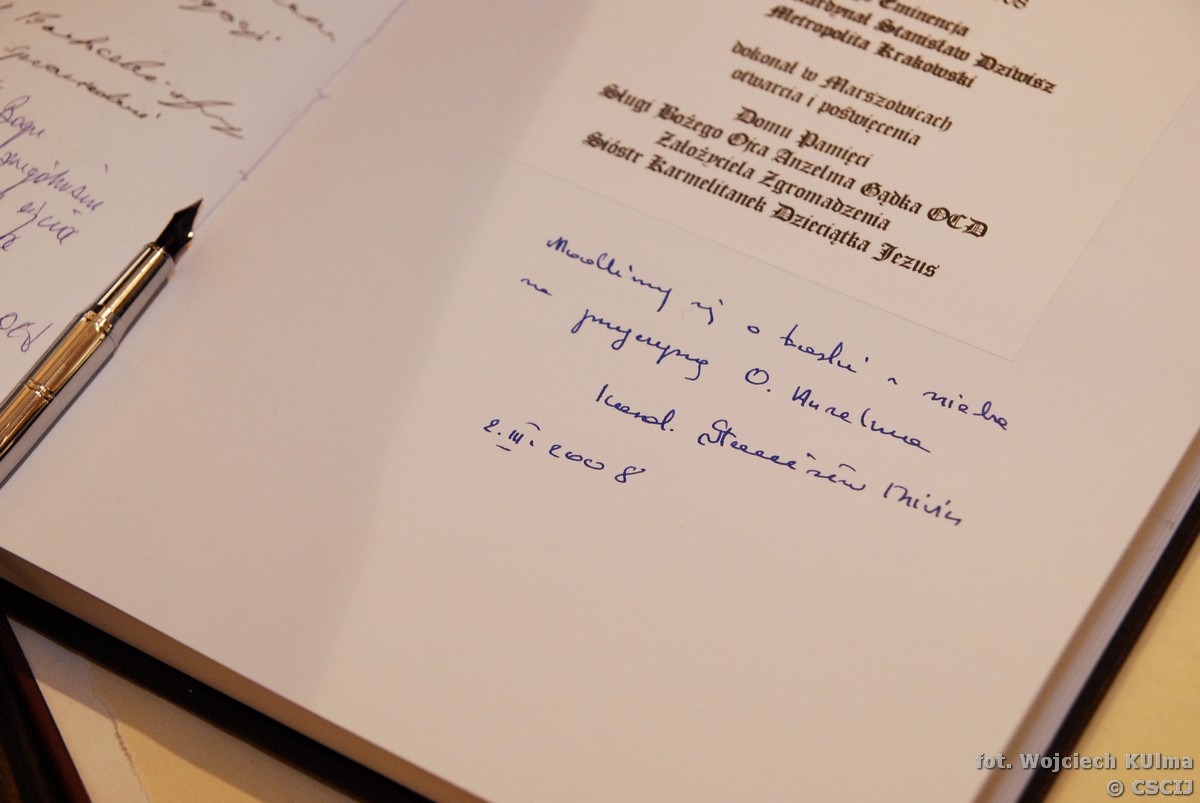 Eminencja
Kardynał Stanisław Dziwisz
Metropolita Krakowski
dokonał w Marszowicach
otwarcia i poświęcenia
Domu Pamięci
Sługi Bożego Ojca Anzelma Gądka OCD
Założyciela Zgromadzenia
Sióstr Karmelitanek Dzieciątka Jezus
Modlimy się o łaski z nieba
na przyczynę O. Anzelma
Kard. Stanisław Dziwisz
2.III.2008
Bogu
życia
OCD
fot. Wojciech KUlma
© CSCIJ